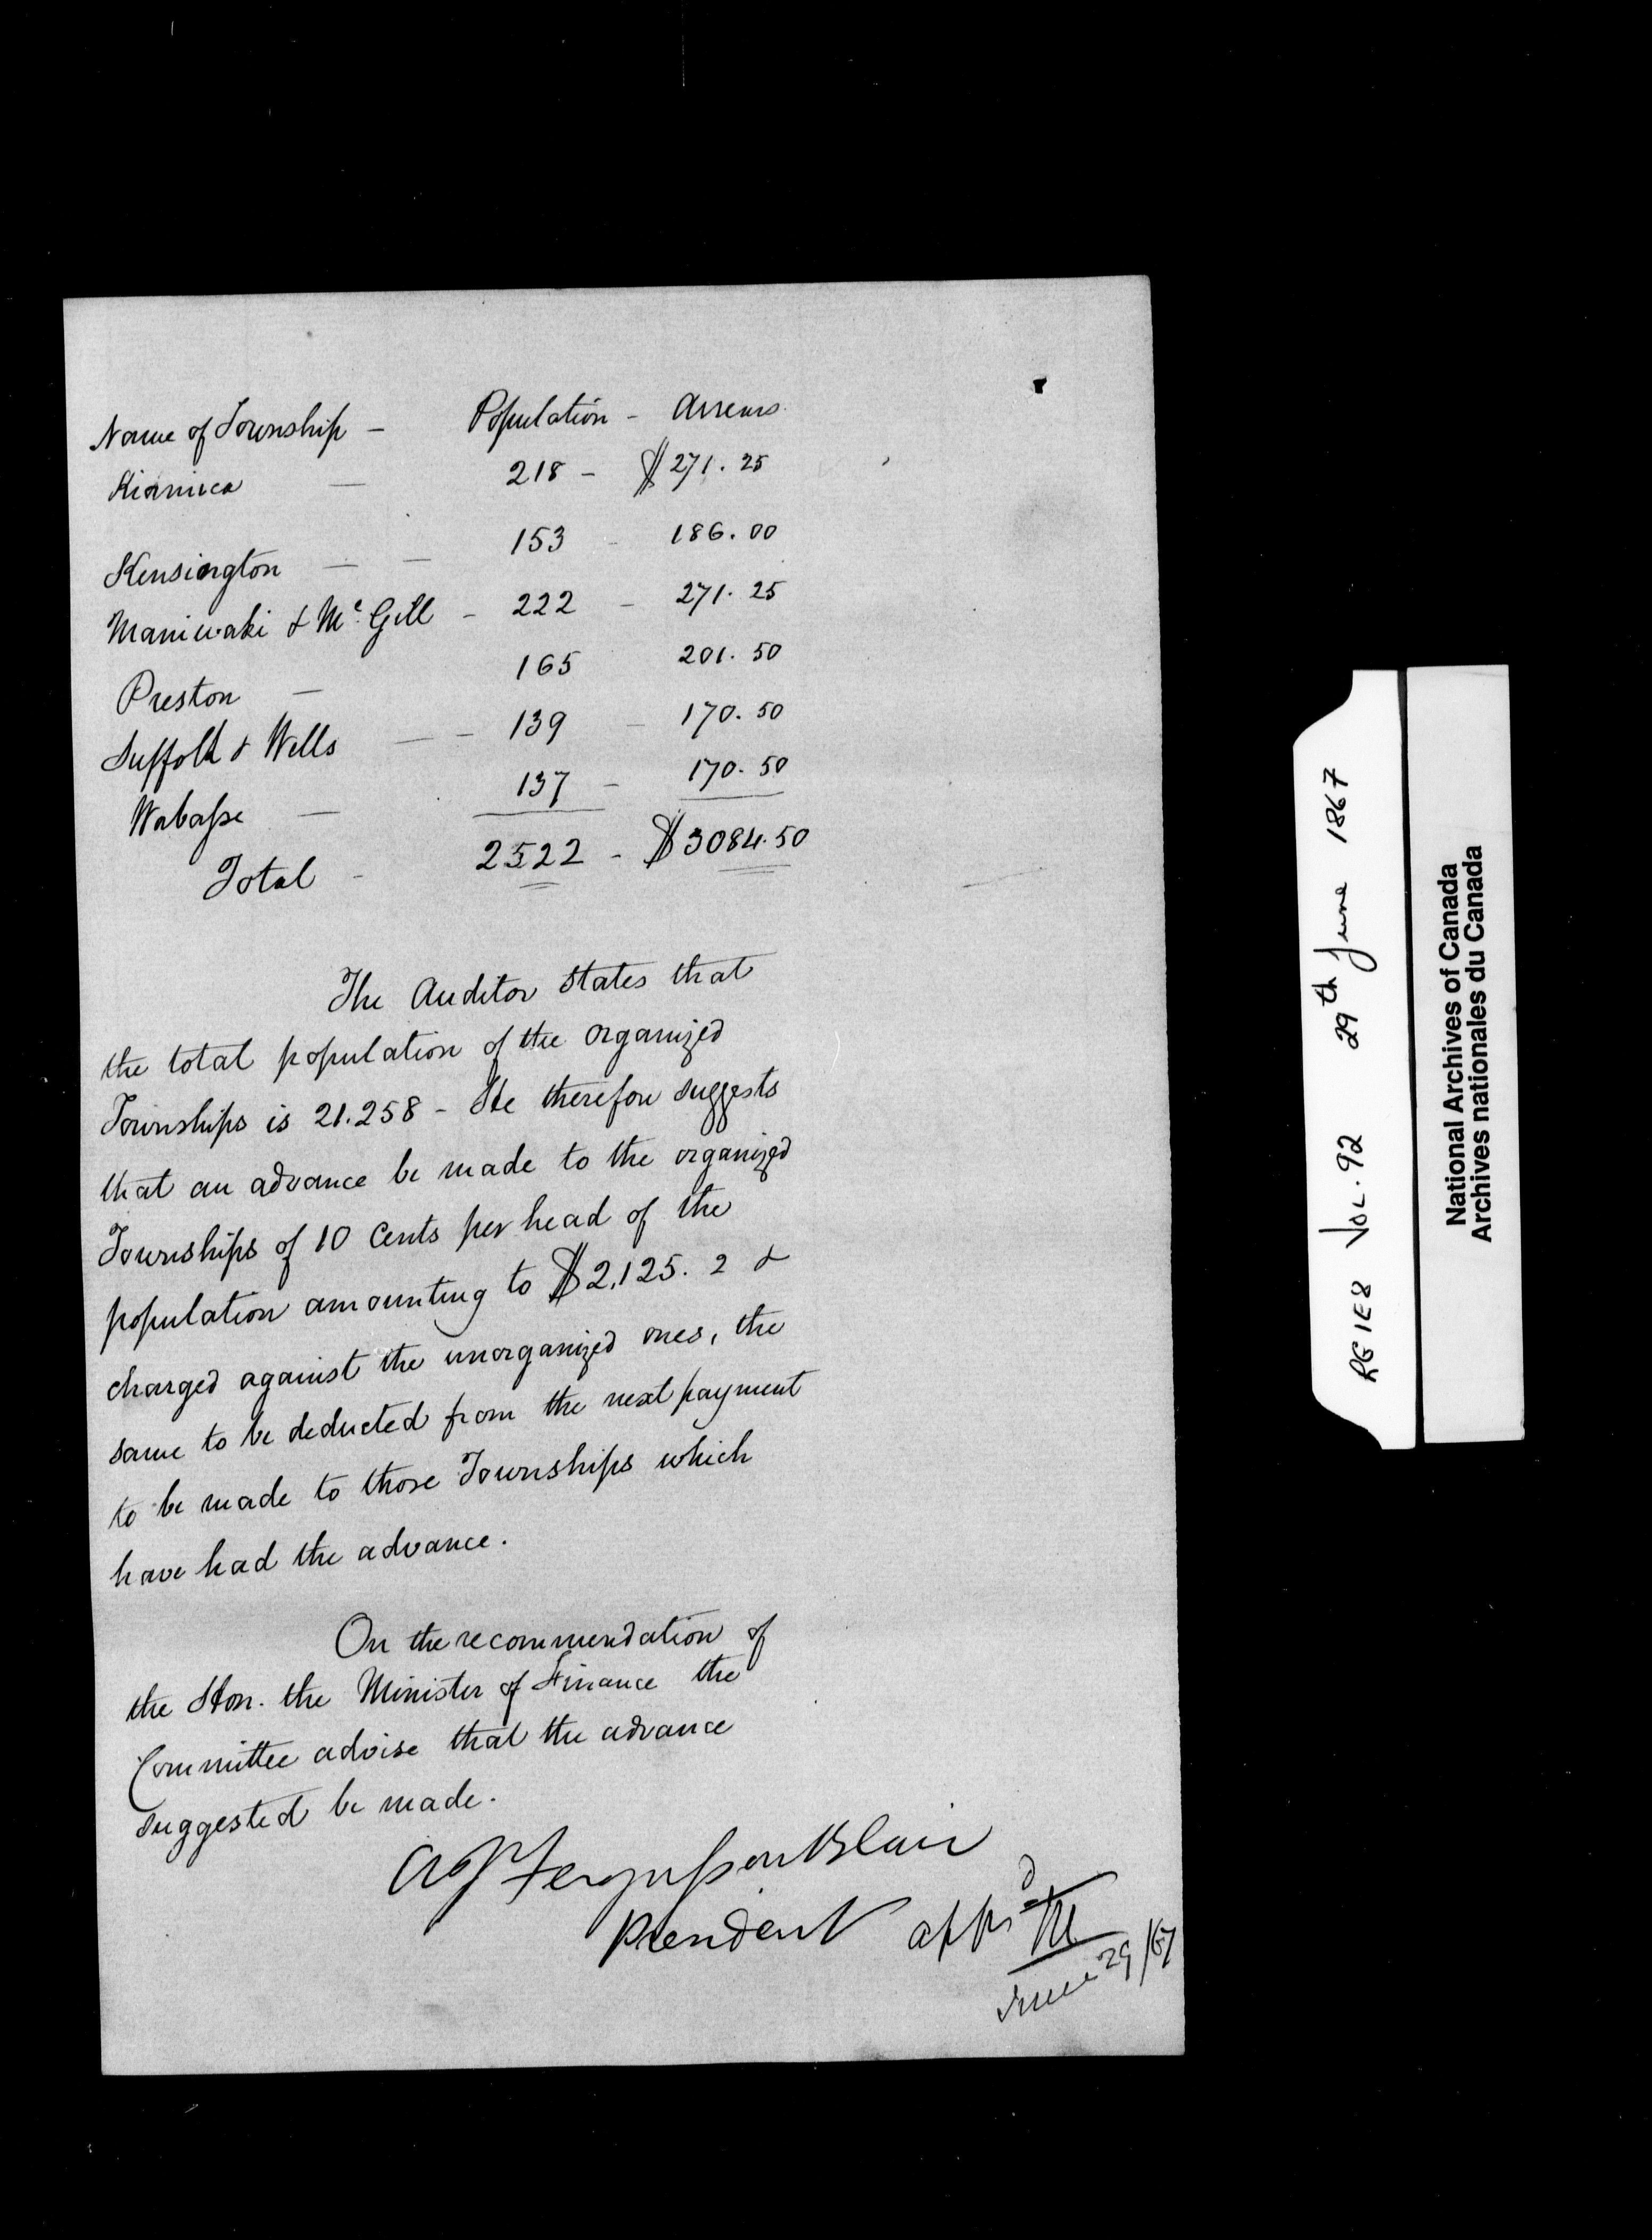 Name of Township - Population - Arrears
Kiamica — 218 - $271.25
Kensington — — 153 - 186.00
Maniwaki & Mc. Gill - 222 - 271.25
Preston — 165 201.50
Suffolk & Wells — - 139 - 170.50
Wabasse — 137 - 170.50
Total - 2522 - $3084.50
The Auditor states that
the total population of the organized
Townships is 21.258 - He therefore suggests
that an advance be made to the organized
Townships of 10 Cents per head of the
population amounting to $2,125. 2 &
charged against the unorganized ones, the
same to be deducted from the next payment
to be made to those Townships which
have had the advance.
On the recommendation of
the Hon. the Minister of Finance the
Committee advise that the advance
suggested be made.
A J Fergusson Blair
President
appd M
June 29/67
RG1E8 VOL. 92 29th June 1867
National Archives of Canada
Archives nationales du Canada